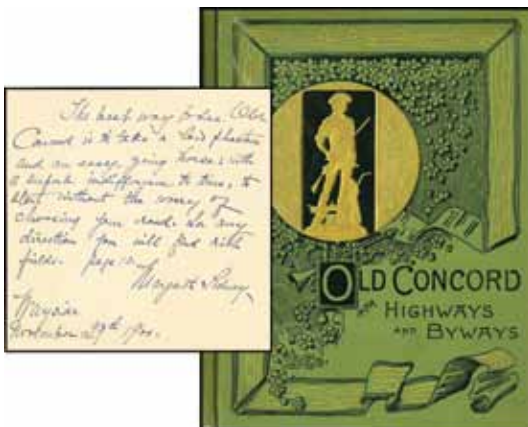 The best way to see Old
Concord is to take a phaeton
and an easy going horse; with
a indifference to time, to
without the worry of
choosing your road. In any
direction you will find rich
fields. page
Margaret Sidney
Wayside
November
OLD CONCORD
HER HIGHWAYS
AND BYWAYS